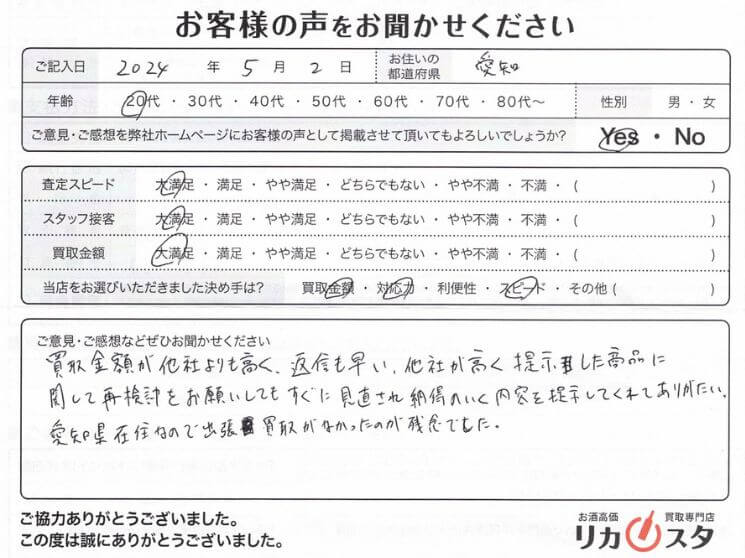 お客様の声をお聞かせください
ご記入日 2024 年 5 月 2 日 お住いの都道府県 愛知
年齢 20代・30代・40代・50代・60代・70代・80代～ 性別 男・女
ご意見・ご感想を弊社ホームページにお客様の声として掲載させて頂いてもよろしいでしょうか? Yes・No
査定スピード 大満足・満足・やや満足・どちらでもない・やや不満・不満・( )
スタッフ接客 大満足・満足・やや満足・どちらでもない・やや不満・不満・( )
買取金額 大満足・満足・やや満足・どちらでもない・やや不満・不満・( )
当店をお選びいただきました決め手は? 買取金額・対応力・利便性・スピード・その他( )
ご意見・ご感想などぜひお聞かせください
買取金額が他社よりも高く、返信も早い。他社が高く提示した商品に
関して再検討をお願いしてもすぐに見直され納得のいく内容を提示してくれてありがたい。
愛知県在住なので出張買取がなかったのが残念でした。
ご協力ありがとうございました。
この度は誠にありがとうございました。
お酒高価 買取専門店
リカスタ